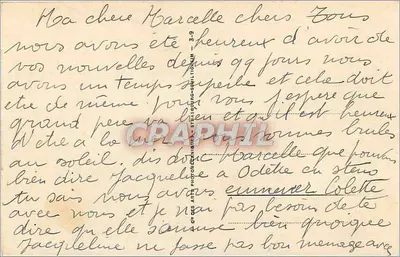 Ma chere Marcelle chers Tous
nous avons été heureux d'avoir de
vos nouvelles depuis qq jours nous
avons un temps superbe et cela doit
etre de meme pour vous j'espere que
grand pere va bien et qu'il est heureux
d'etre a la nous sommes brulés
au soleil. dis donc Marcelle que
bien dire Jacqueline a Odette
tu sais nous avons emmener Colette
avec nous et je n'ai pas besoin de te
dire qu'elle s'amuse bien quoique
Jacqueline ne fasse pas bon menage avec
CPAPHIL
3-9